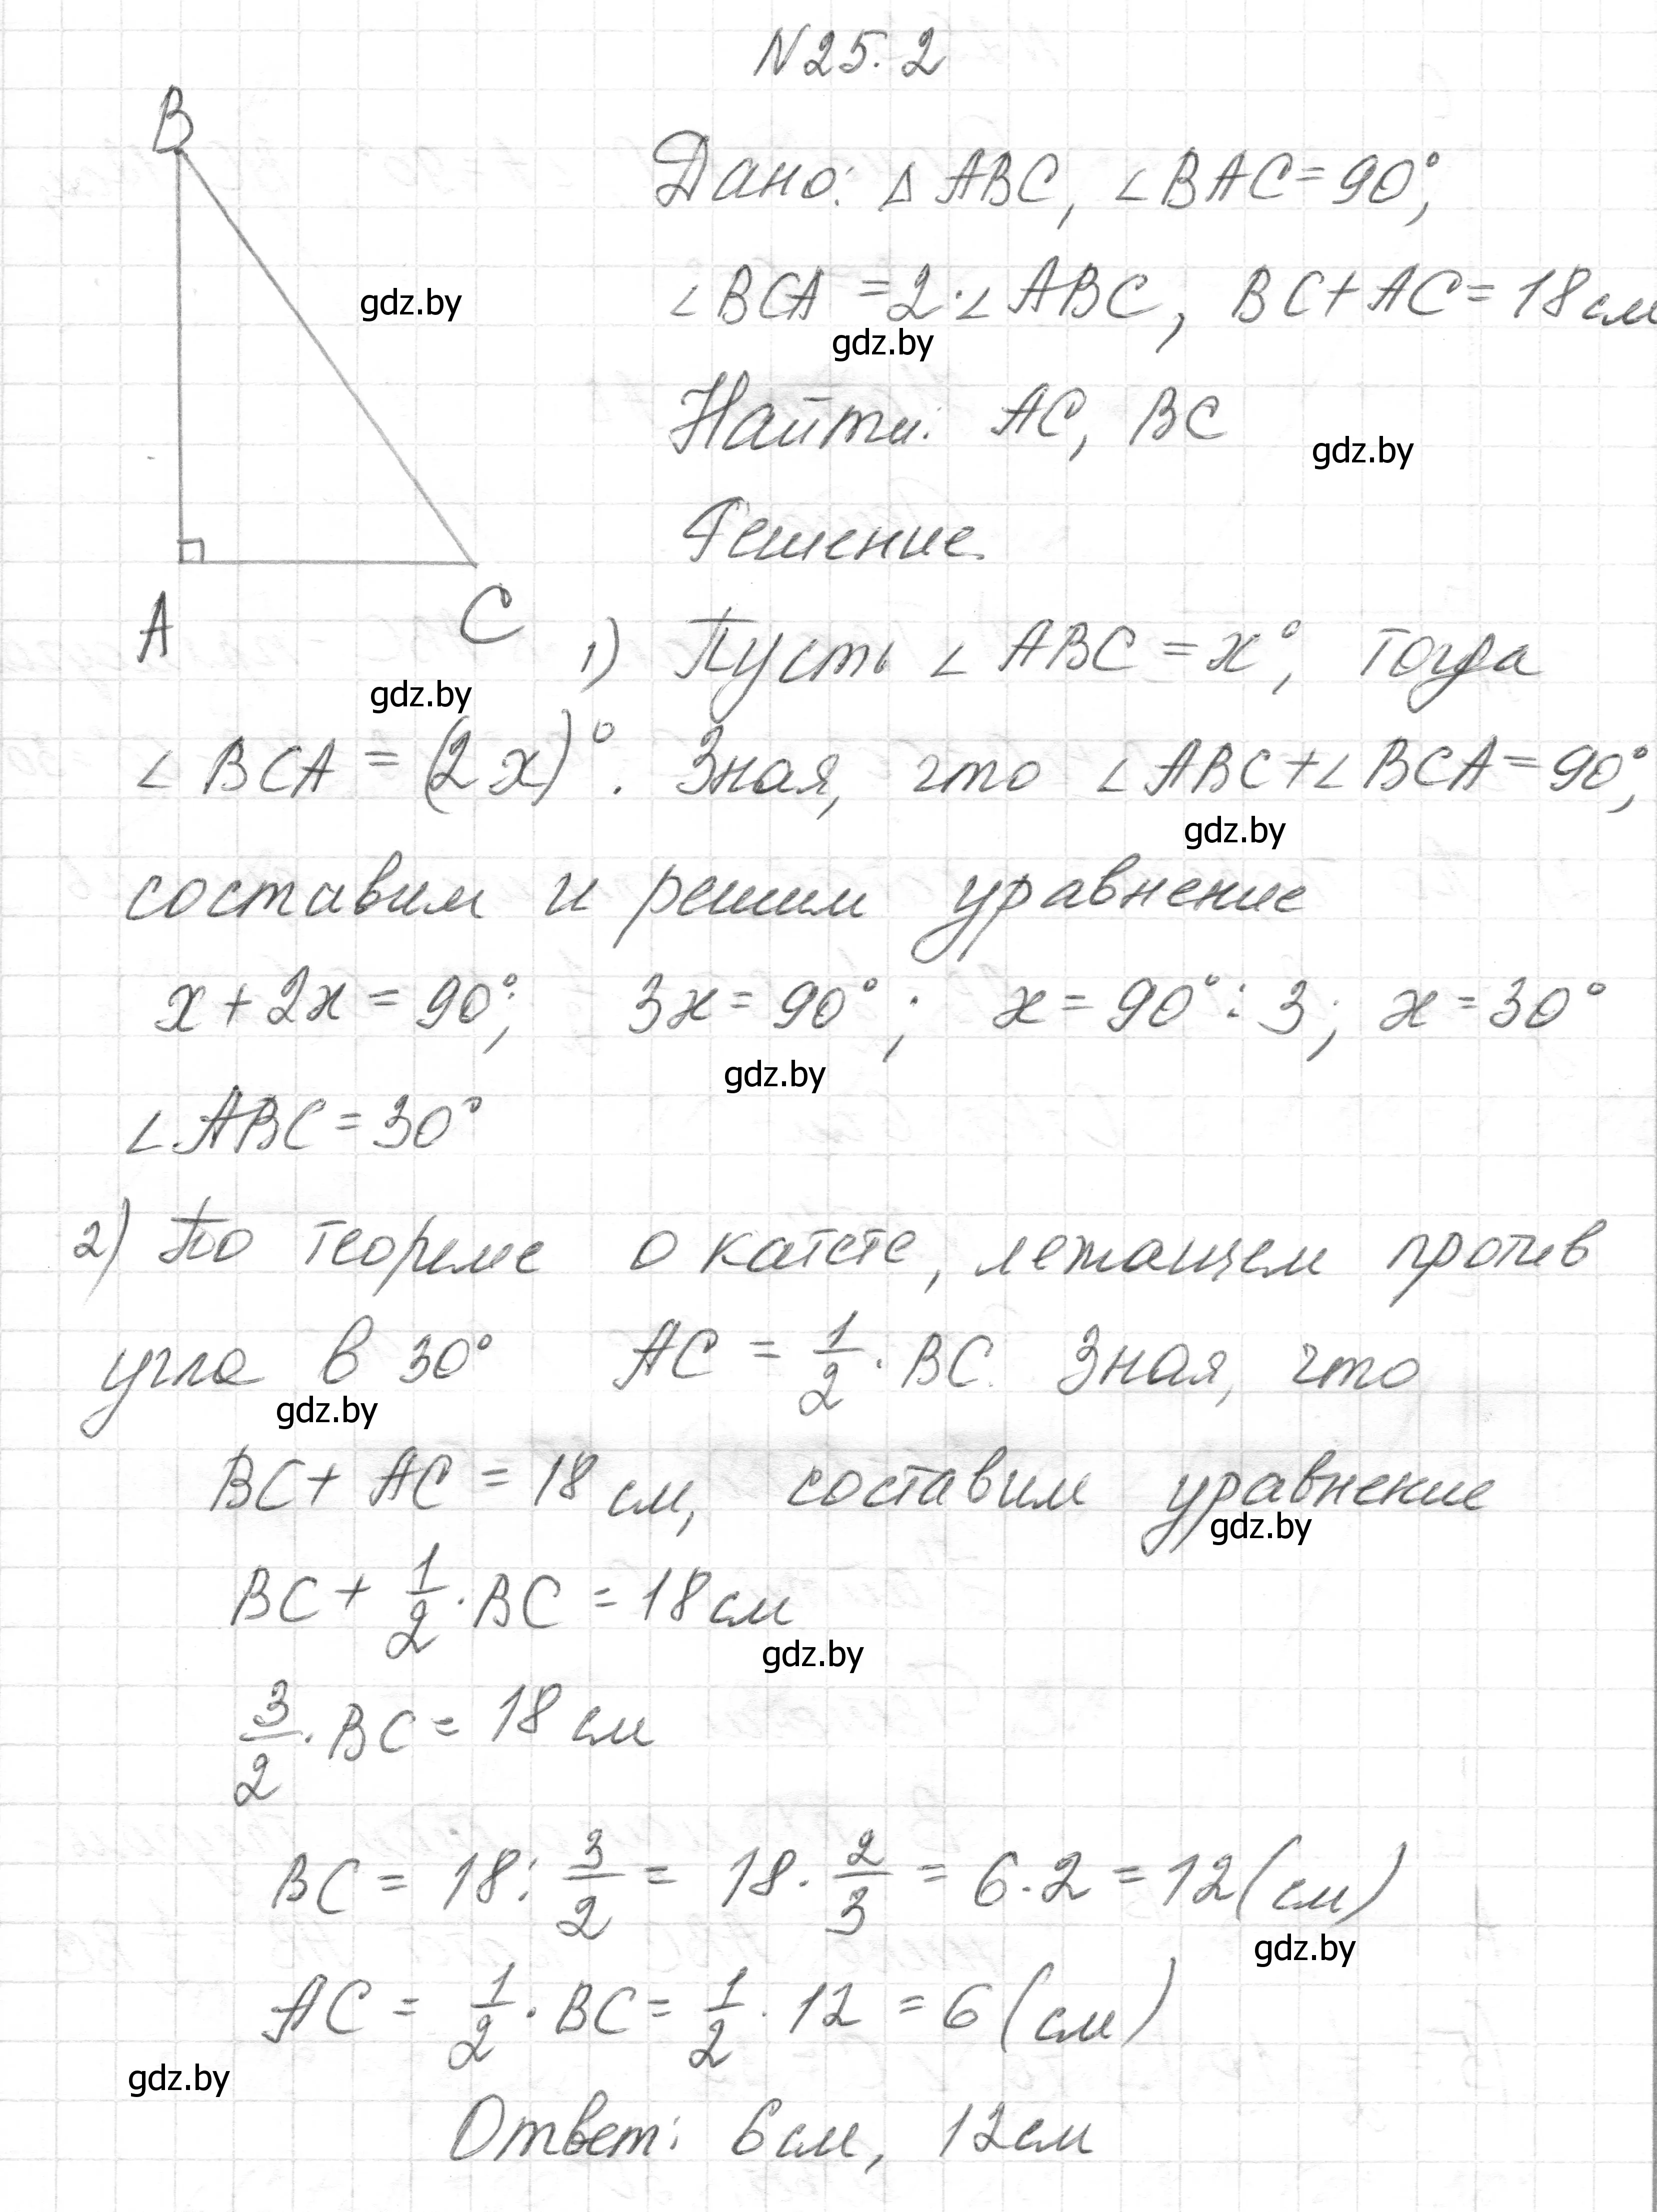 N25.2
B
Дано: △ABC, ∠BAC=90°,
gdz.by
∠BCA=2·∠ABC, BC+AC=18см
gdz.by
Найти: AC, BC
gdz.by
Решение.
A
C
1) Пусть ∠ABC=x°, тогда
gdz.by
∠BCA=(2x)°. Зная, что ∠ABC+∠BCA=90°,
gdz.by
составим и решим уравнение
x+2x=90°; 3x=90°; x=90°:3; x=30°
gdz.by
∠ABC=30°
2) По теореме о катете, лежащем против
угла в 30° AC=1/2·BC. Зная, что
gdz.by
BC+AC=18 см, составим уравнение
gdz.by
BC+1/2·BC=18см
gdz.by
3/2·BC=18 см
BC=18:3/2=18·2/3=6·2=12(см)
gdz.by
AC=1/2·BC=1/2·12=6(см)
gdz.by
Ответ: 6см, 12см